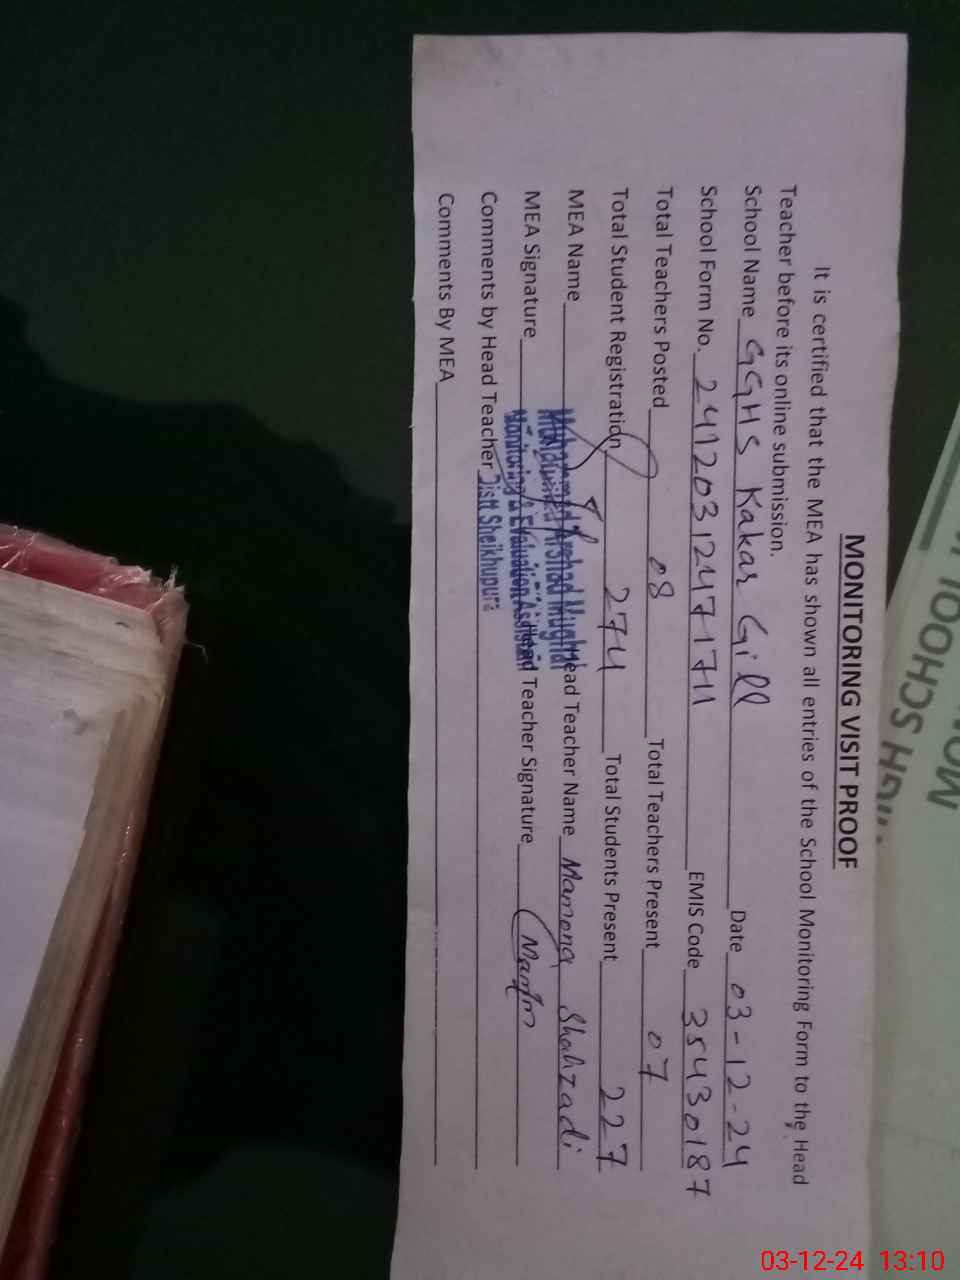 MONITORING VISIT PROOF
It is certified that the MEA has shown all entries of the School Monitoring Form to the Head
Teacher before its online submission.
School Name GGHS Kakar Gill Date 03-12-24
School Form No. 2412031247171 EMIS Code 35430187
Total Teachers Posted 08 Total Teachers Present 07
Total Student Registration 274 Total Students Present 227
MEA Name Muhammad Arshad Mughal Head Teacher Name Mamona Shahzadi
MEA Signature Monitoring & Evaluation Assistant Head Teacher Signature
Comments by Head Teacher Distt Sheikhupura
Comments By MEA
SCHOOL
HIGH SCHOOL
03-12-24 13:10